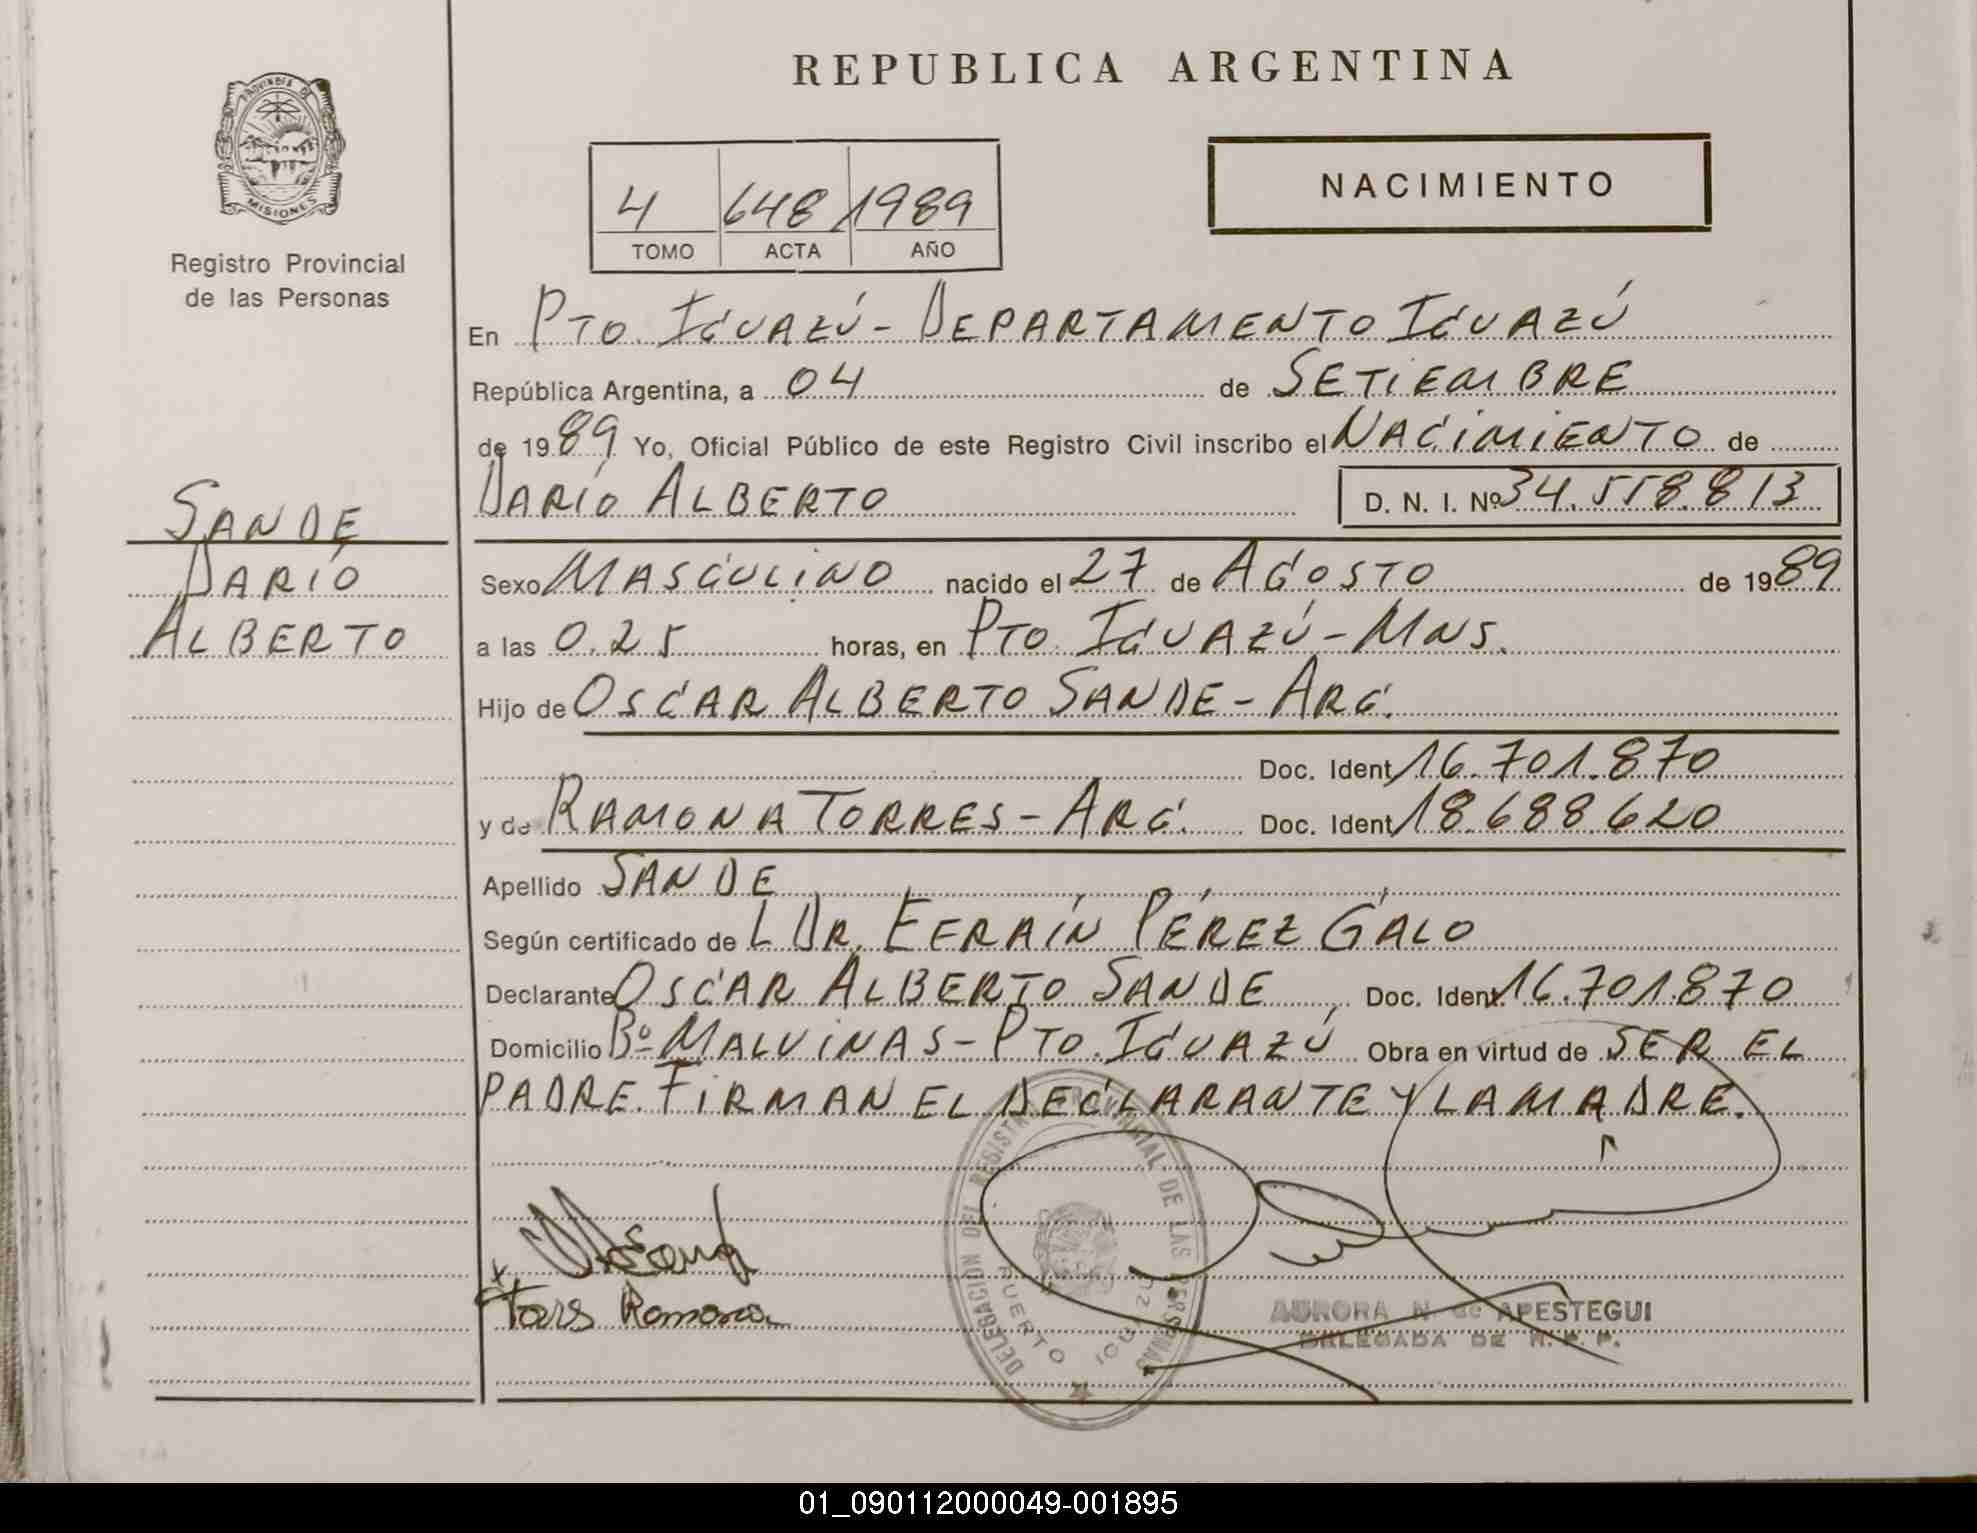 REPUBLICA ARGENTINA
PROVINCIA DE
MISIONES
Registro Provincial
de las Personas
4 648 1989
TOMO ACTA AÑO
NACIMIENTO
En PTO. IGUAZÚ - DEPARTAMENTO IGUAZÚ
República Argentina, a 04 de SETIEMBRE
de 1989 Yo, Oficial Público de este Registro Civil inscribo el NACIMIENTO de
DARÍO ALBERTO D. N. I. Nº 34.558.813
SANDE
DARÍO
ALBERTO
Sexo MASCULINO nacido el 27 de AGOSTO de 1989
a las 0.25 horas, en PTO. IGUAZÚ - MNS.
Hijo de OSCAR ALBERTO SANDE - ARG.
Doc. Ident 16.701.870
y de RAMONA TORRES - ARG. Doc. Ident 18.688.620
Apellido SANDE
Según certificado de L DR. EFRAÍN PÉREZ GALO
Declarante OSCAR ALBERTO SANDE, Doc. Ident. 16.701.870
Domicilio Bº MALVINAS - PTO. IGUAZÚ Obra en virtud de SER EL
PADRE. FIRMAN EL DECLARANTE Y LA MADRE.
DELEGACION DEL REGISTRO PROVINCIAL DE LAS PERSONAS
PUERTO IGUAZU
Ramona
AURORA N. de APESTEGUI
DELEGADA DE R. P. P.
01_090112000049-001895